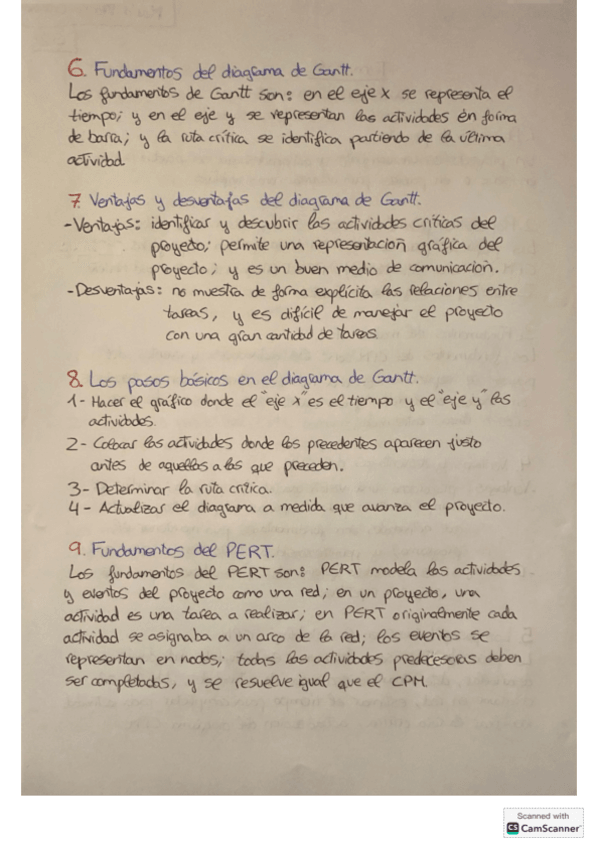 6. Fundamentos del diagrama de Gantt.
Los fundamentos de Gantt son: en el eje x se representa el
tiempo; y en el eje y se representan las actividades en forma
de barra; y la ruta crítica se identifica partiendo de la última
actividad.
7. Ventajas y desventajas del diagrama de Gantt.
- Ventajas: identificar y descubrir las actividades críticas del
proyecto; permite una representación gráfica del
proyecto; y es un buen medio de comunicación.
- Desventajas: no muestra de forma explícita las relaciones entre
tareas, y es difícil de manejar el proyecto
con una gran cantidad de tareas.
8. Los pasos básicos en el diagrama de Gantt.
1- Hacer el gráfico donde el "eje x" es el tiempo y el "eje y" las
actividades.
2- Colocar las actividades donde los precedentes aparecen justo
antes de aquellas a las que preceden.
3- Determinar la ruta crítica.
4- Actualizar el diagrama a medida que avanza el proyecto.
9. Fundamentos del PERT.
Los fundamentos del PERT son: PERT modela las actividades
y eventos del proyecto como una red; en un proyecto, una
actividad es una tarea a realizar; en PERT originalmente cada
actividad se asignaba a un arco de la red; los eventos se
representan en nodos; todas las actividades predecesoras deben
ser completadas, y se resuelve igual que el CPM.
Scanned with
CS CamScanner